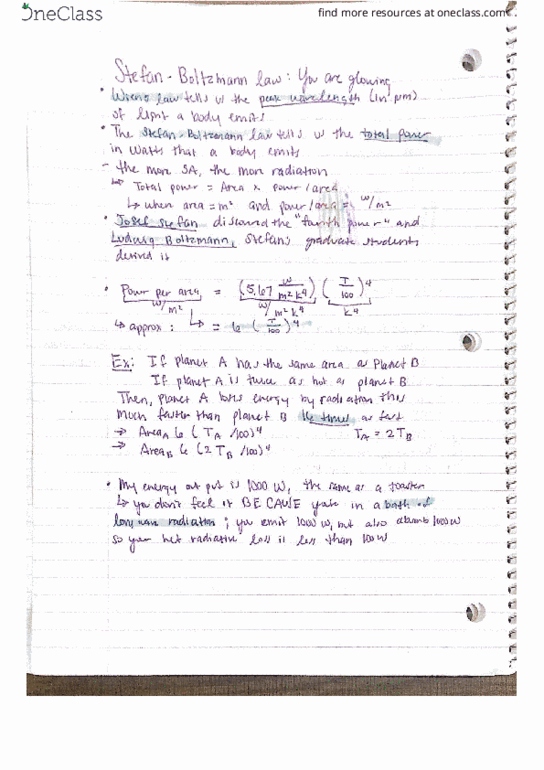 OneClass
find more resources at oneclass.com
Stefan-Boltzmann law: You are glowing
• Wiens law tells us the peak wavelength (in µm)
of light a body emits
• The Stefan-Boltzmann law tells us the total power
in Watts that a body emits
- the more SA, the more radiation
↳ Total power = Area x power/area
↳ when area = m² and power/area = W/m²
• Josef Stefan discovered the "fourth power" and
Ludwig Boltzmann, Stefan's graduate students
derived it
• Power per area = (5.67 W/m²k⁴) (T/100)⁴
W/m² W/m²k⁴ k⁴
↳ approx: ↳ = 6 (T/100)⁴
Ex: If planet A has the same area as Planet B
If planet A is twice as hot as planet B
Then, planet A loses energy by radiation this
much faster than planet B 16 times as fast
→ AreaA 6 (TA /100)⁴ TA = 2TB
→ AreaB 6 (2TB /100)⁴
• My energy out put is 1000 W, the same as a toaster
↳ you don't feel it BECAUSE you're in a bath of
long wave radiation; you emit 1000 W, but also absorb 1000 W
so your net radiative loss is less than 100 W